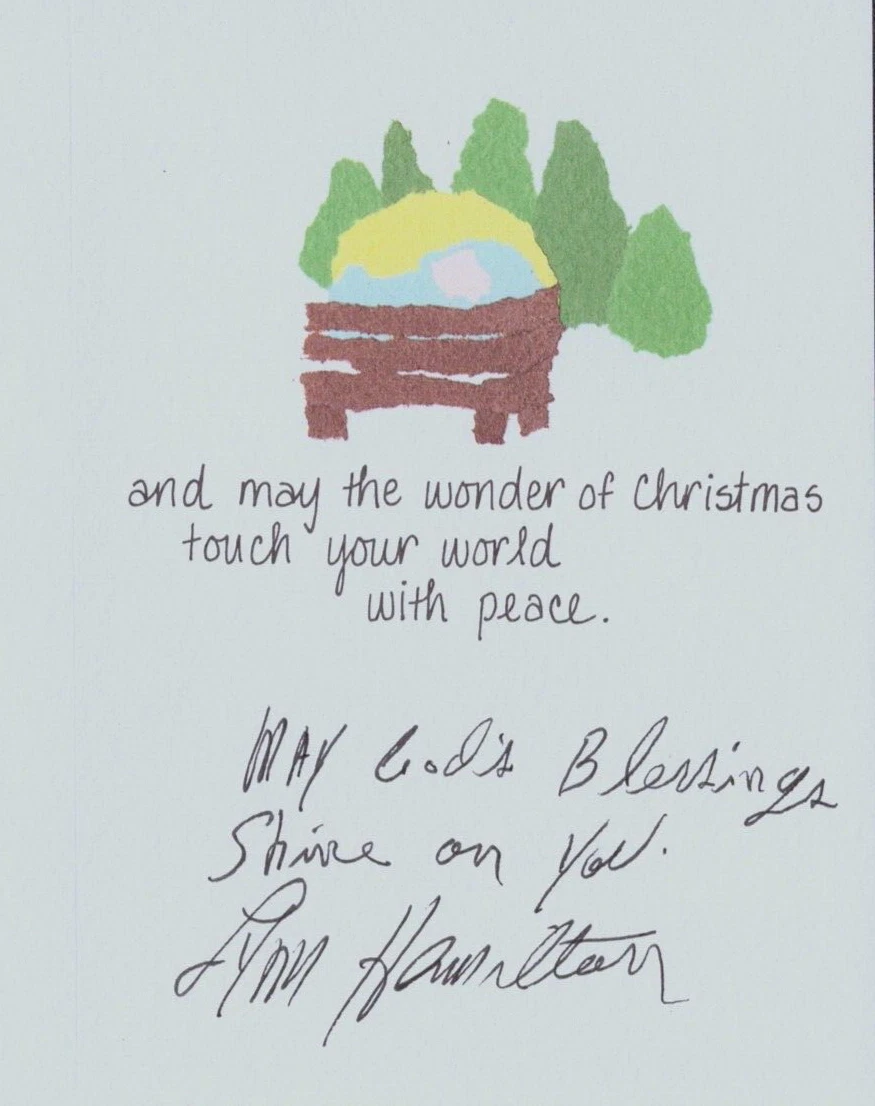 and may the wonder of Christmas
touch your world
with peace.
MAY God's Blessings
Shine on You.
Lynn Hamilton